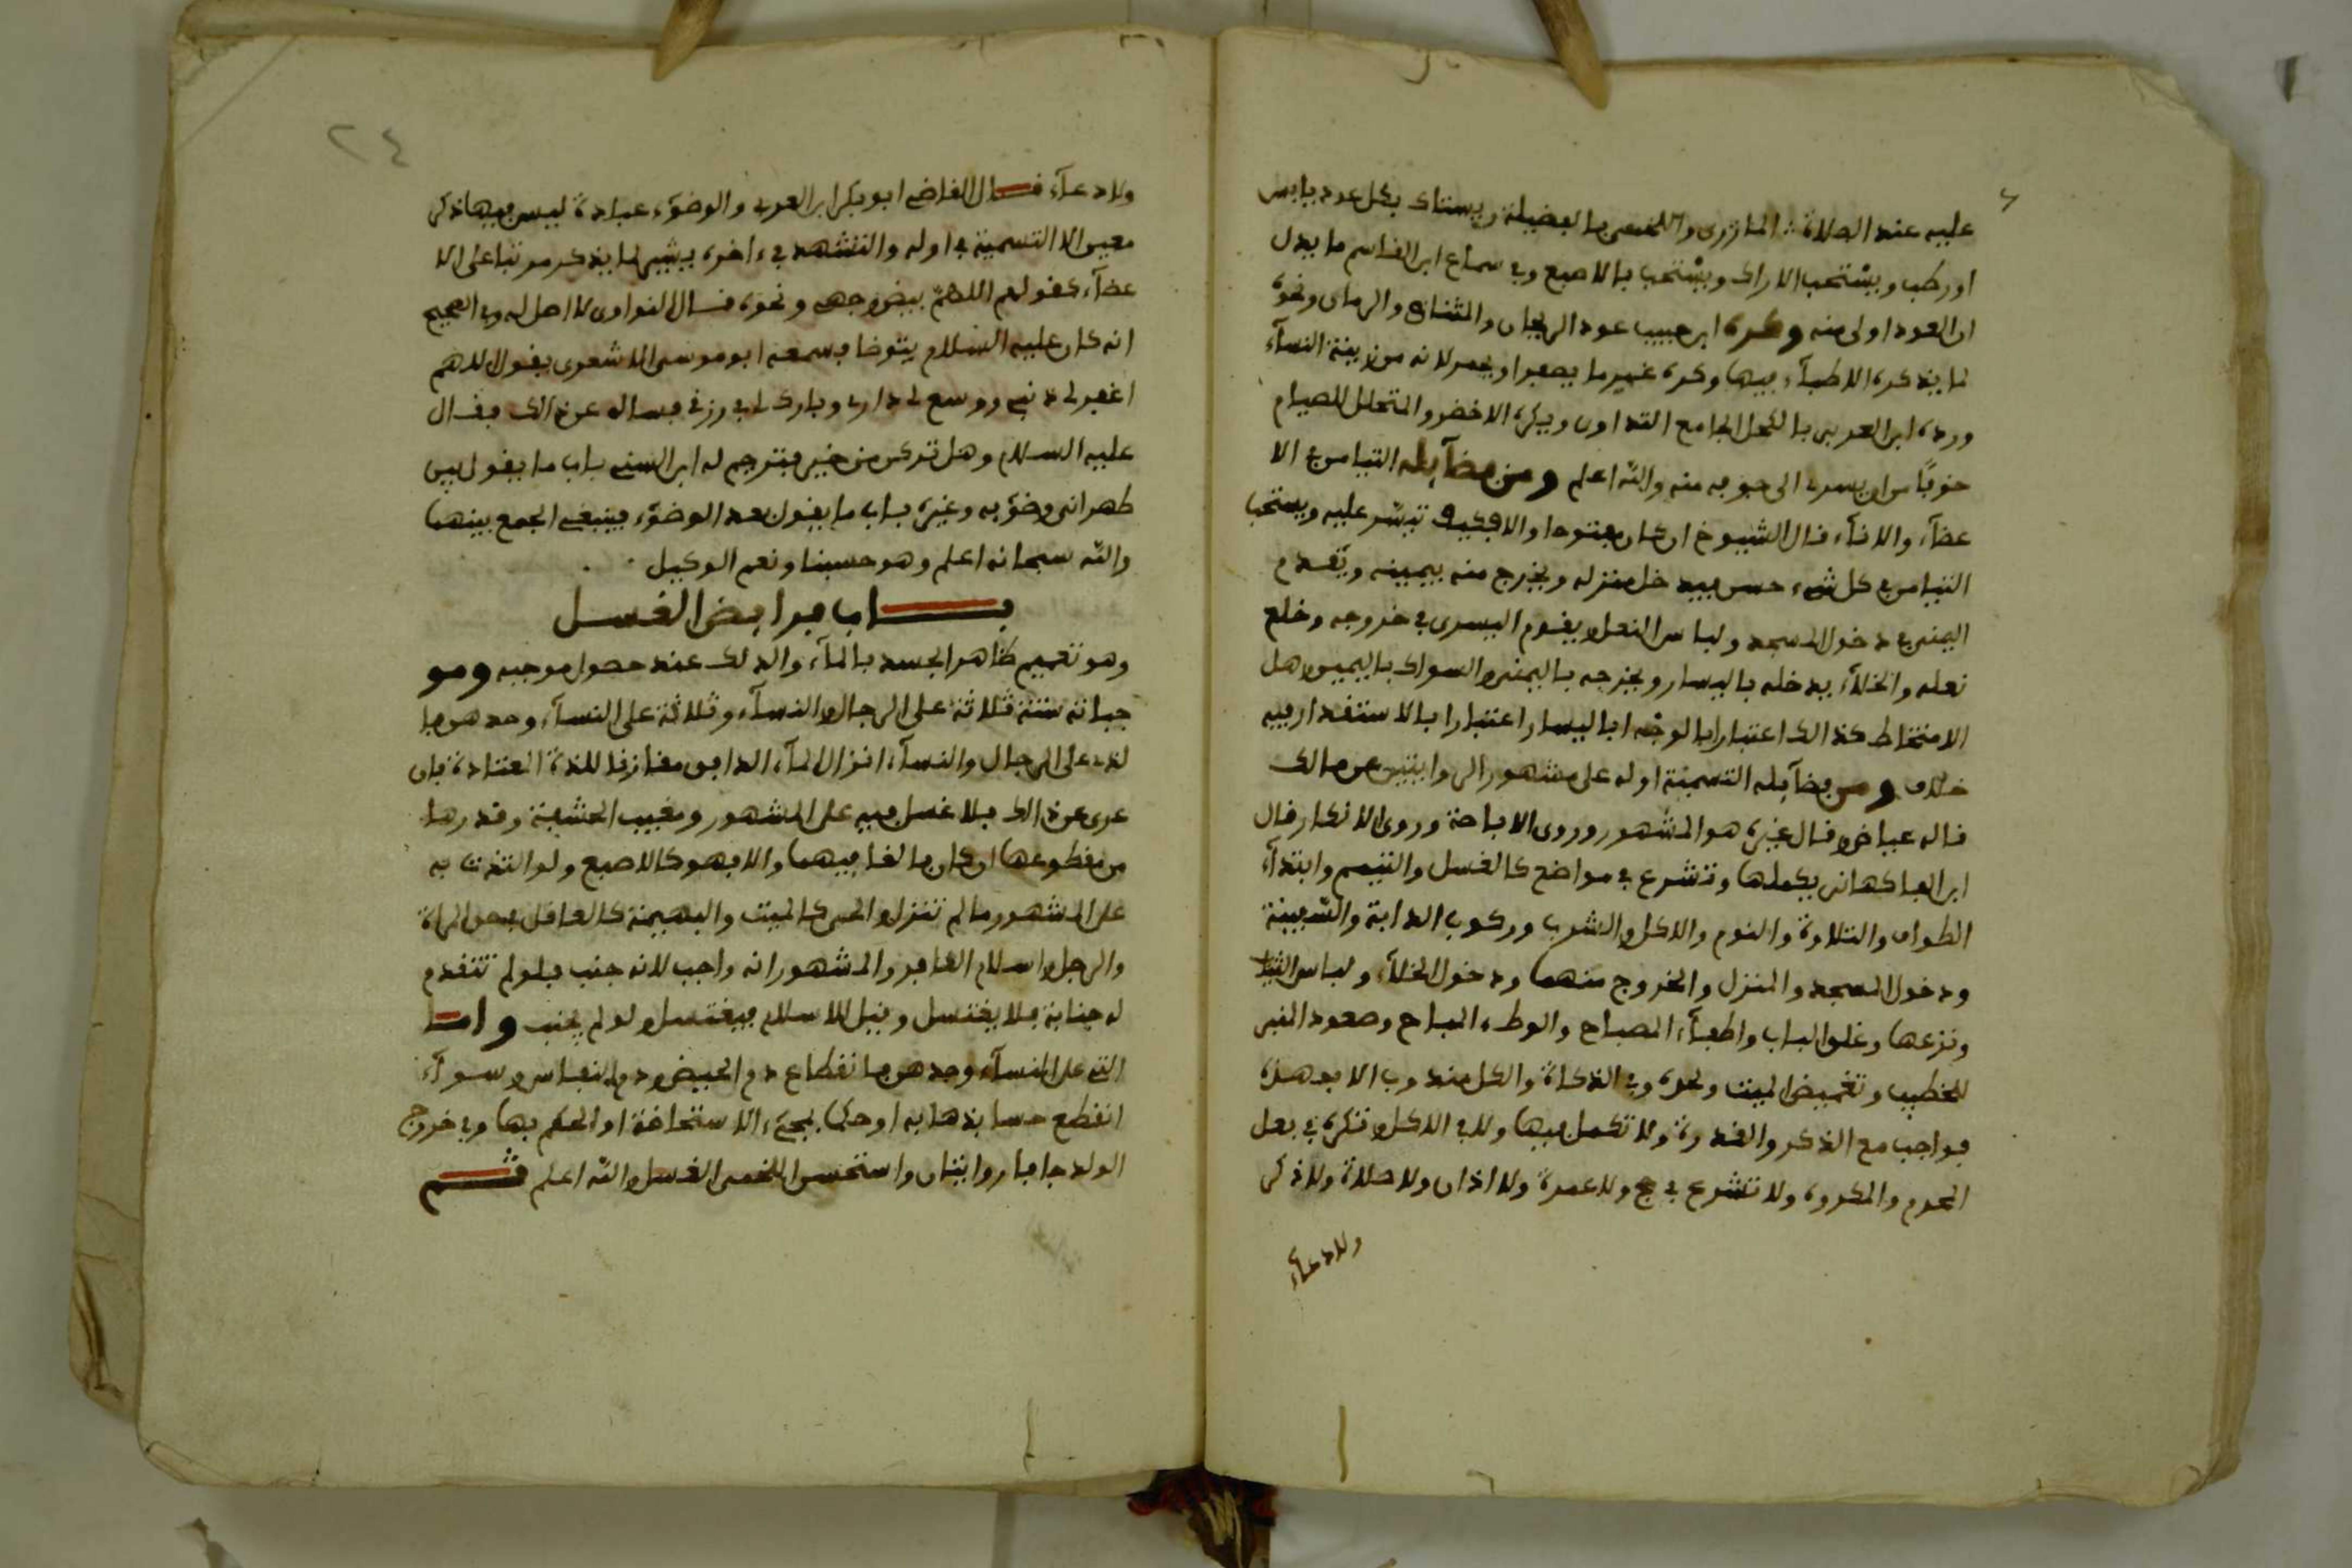 عليه عند الصلاة المازرى واللخمى بالفضيلة ويستاك بكل عود يابس
او رطب ويستحب الاراك ويستحب بالاصبع وفى سماع ابن القاسم ما يدل
ان العود اولى منه وكره ابن حبيب عود الريحان والرمان ونحوه
لما يذكره الاطباء فيها وكره غيره ما يصفر او يحمر لانه من زينة النساء
ورده ابن العربى بالكحل الجامع التداوى ويكره الاخضر والمتحلل للصيام
خوفًا من ان يسرى الى جوفه منه والله اعلم ومن فضآئله التيامن فى الا
عضآء والانآء قال الشيوخ ان كان مفتوحا والا فكيف تيسّر عليه ويستحب
التيامن فى كل شىء حسن فيدخل منزله ويخرج منه بيمينه ويقدم
اليمنى فى دخول المسجد ولباس النعل ويقدم اليسرى فى خروجه وخلع
نعله والخلآء يدخله باليسار ويخرجه باليمنى والسواك باليمين وهل
الامتخاط كذالك اعتبارا بالوجْه او باليسار اعتبارا بالاستقذار فيه
خلاف ومن فضآئله التسمية اوله على مشهور الروايتين عن مالك
قاله عياض وقال غيره هو المشهور وروى الاباحة وروى الانكار قال
ابن الفاكهانى يكملها وتشرع فى مواضع كالغسل والتيمم وابتدآء
الطواف والتلاوة والنوم والاكل والشرب وركوب الدابة والسّفينة
ودخول المسجد والمنزل والخروج منهما ودخول الخلآء ولباس الثياب
ونزعها وغلق الباب واطفآء المصباح والوطء المباح وصعود المنبر
للخطيب وتغميض الميت ونحوه وفى الذكاة والكل مندوب الا بهذه
فواجب مع الذكر والقدرة ولا تكمل فيها ولا فى الاكل وتكره فى فعل
المحرم والمكروه ولا تشرع فى حج ولا عمرة ولا اذان ولا صلاة ولا ذكر
ولا دعآء
٢٤
ولا دعآء قال القاضى ابو بكر ابن العربى والوضوء عبادة ليس فيها ذكر
معين الا التسمية فى اوله والتشهد فى ءاخره يشير لما يذكر مرتبا على الا
عضآء كقولهم اللهمّ بيض وجهى ونحوه قال النواوى لا اصل له وفى الصحيح
انه كان عليه السلام يتوضا فسمعه ابو موسى الاشعرى يقول اللهم
اغفر لى ذنبى ووسع لى دارى وبارك لى فى رزقى فساله عن ذالك فقال
عليه السلام وهل تركن من خير فترجم له ابن السنى باب ما يقول بين
ظهرانى وضوٓئه وغيره باب ما يقول بعد الوضوء فينبغى الجمع بينهما
والله سبحانه اعلم وهو حسبنا ونعم الوكيل
بـاب فرايض الغسل
وهو تعميم ظاهر الجسد بالمآء والدلك عند حصول موجبه ومو
جباته ستة ثلاثة على الرجال والنسآء وثلاثة على النسآء وحدهن فا
لذى على الرجال والنسآء انزال المآء الدافق مقارنا للذة المعتادة فان
عرى عن ذالك فلا غسل فيه على المشهور ومغيب الحشفة وقدرها
من مقطوعها ان كان بالغا فيهما والا فهو كالاصبع ولو التذت به
على المشهور ما لم تنزل والحى كالميت والبهيمة كالعاقل فى المراة
والرجل واسلام الكافر والمشهور انه واجب لانه جنب فلو لم تتقدم
له جنابة فلا يغتسل وقيل للاسلام فيغتسل ولو لم يجنب وامـا
التى على النسآء وحدهن فانقطاع دم الحيض ودم النفاس وسوآء
انقطع حسا بذهابه او حكما بمجىء الاستحاضة او الحكم بها وفى خروج
الولد جافا روايتان واستحسن اللخمى الغسل والله اعلم ثـم